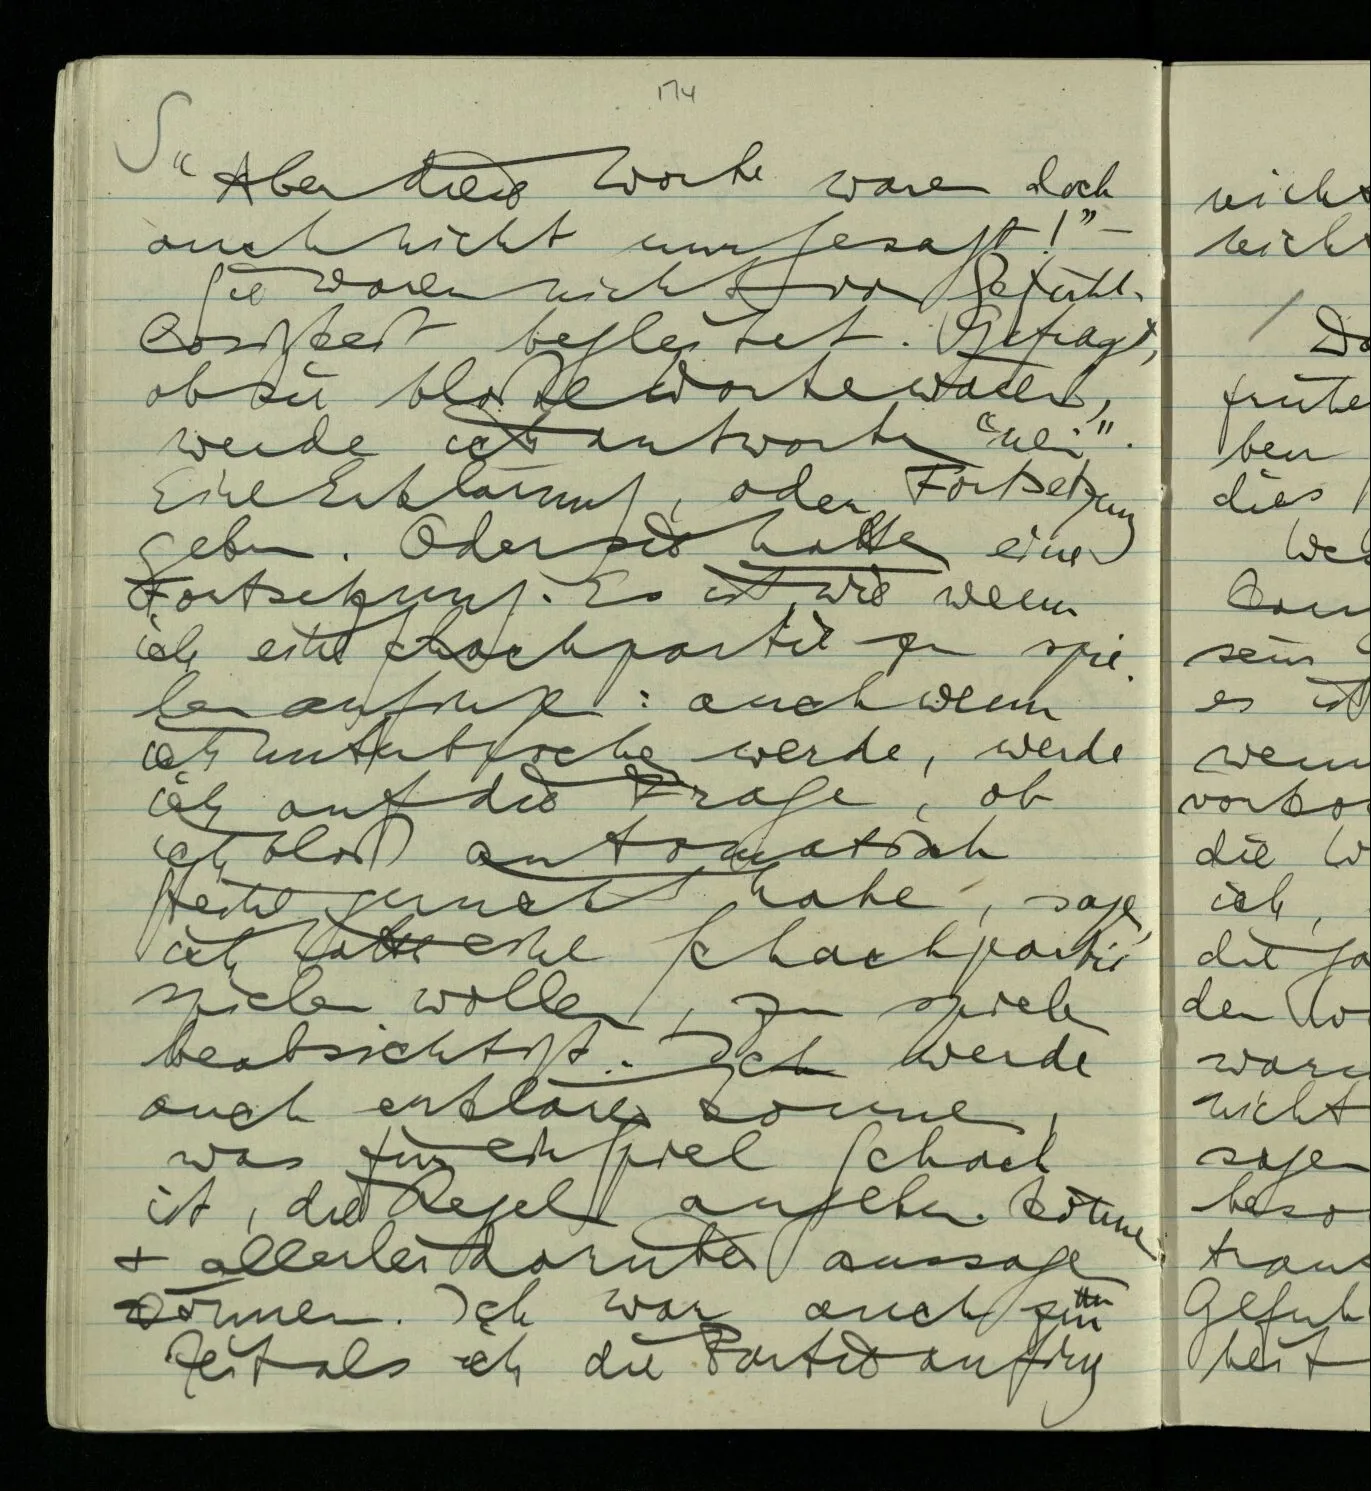 174
S "Aber diese Worte waren doch
auch nicht nur gesagt!" –
Sie waren nicht von Gefühl-
losigkeit begleitet. Gefragt,
ob sie bloße Worte waren,
werde ich antworten "nein".
Eine Erklärung, oder Fortsetzung
geben. Oder sie hatten eine
Fortsetzung. Es ist, wie wenn
ich eine Schachpartie zu spie-
len anfinge: auch wenn
ich unterbrochen werde, werde
ich auf die Frage, ob
ich bloß automatisch
Steine gerückt habe, sagen,
ich hätte eine Schachpartie
spielen wollen, zu spielen
beabsichtigt. Ich werde
auch erklären können,
was für ein Spiel Schach
ist, die Regeln angeben können
+ allerlei darüber aussagen
können. Ich war auch zur
Zeit als ich die Partie anfing
nicht
nicht
/ Da
frühe
ben
dies
sein
es ist
wenn
vorko
die W
ich,
die
den Wo
waru
nicht
sagen
beso
Gefüh
heit